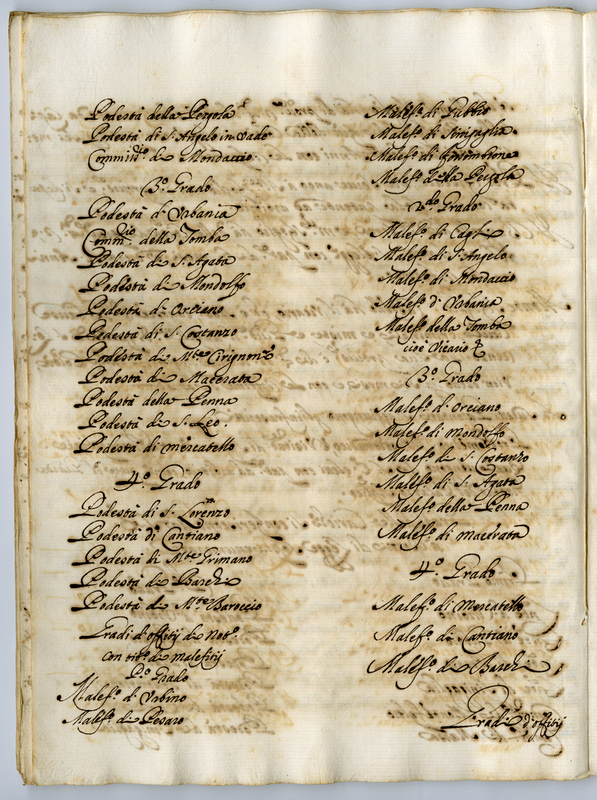 Podestà della Pergola
Podestà di S. Angelo in Vado
Commiss.rio di Mondavio
3.º Grado
Podestà d'Urbania
Comm.rio della Tomba
Podestà di S. Agata
Podestà di Mondolfo
Podestà di Orciano
Podestà di S. Costanzo
Podestà di M.te Cirignone
Podestà di Macerata
Podestà della Penna
Podestà di S. Leo.
Podestà di Mercatello
4.º Grado
Podestà di S. Lorenzo
Podestà di Cantiano
Podestà di M.te Grimano
Podestà di Barchi
Podestà di M.te Baroccio
Gradi d'offitij de Not.ri
con tit.º di malefitij
P.º Grado
Malef.º d'Urbino
Malef.º di Pesaro
Malef.º di Gubbio
Malef.º di Sinigaglia
Malef.º di Fossombrone
Malef.º della Pergola
2.do Grado
Malef.º di Cagli
Malef.º di S. Angelo
Malef.º di Mondavio
Malef.º d'Urbania
Malef.º della Tomba
cioè Vicario
3.º Grado
Malef.º d'Orciano
Malef.º di Mondolfo
Malef.º di S. Costanzo
Malef.º di S. Agata
Malef.º della Penna
Malef.º di macerata
4.º Grado
Malef.º di Mercatello
Malef.º di Cantiano
Malef.º di Barchi
Gradi d'offitij